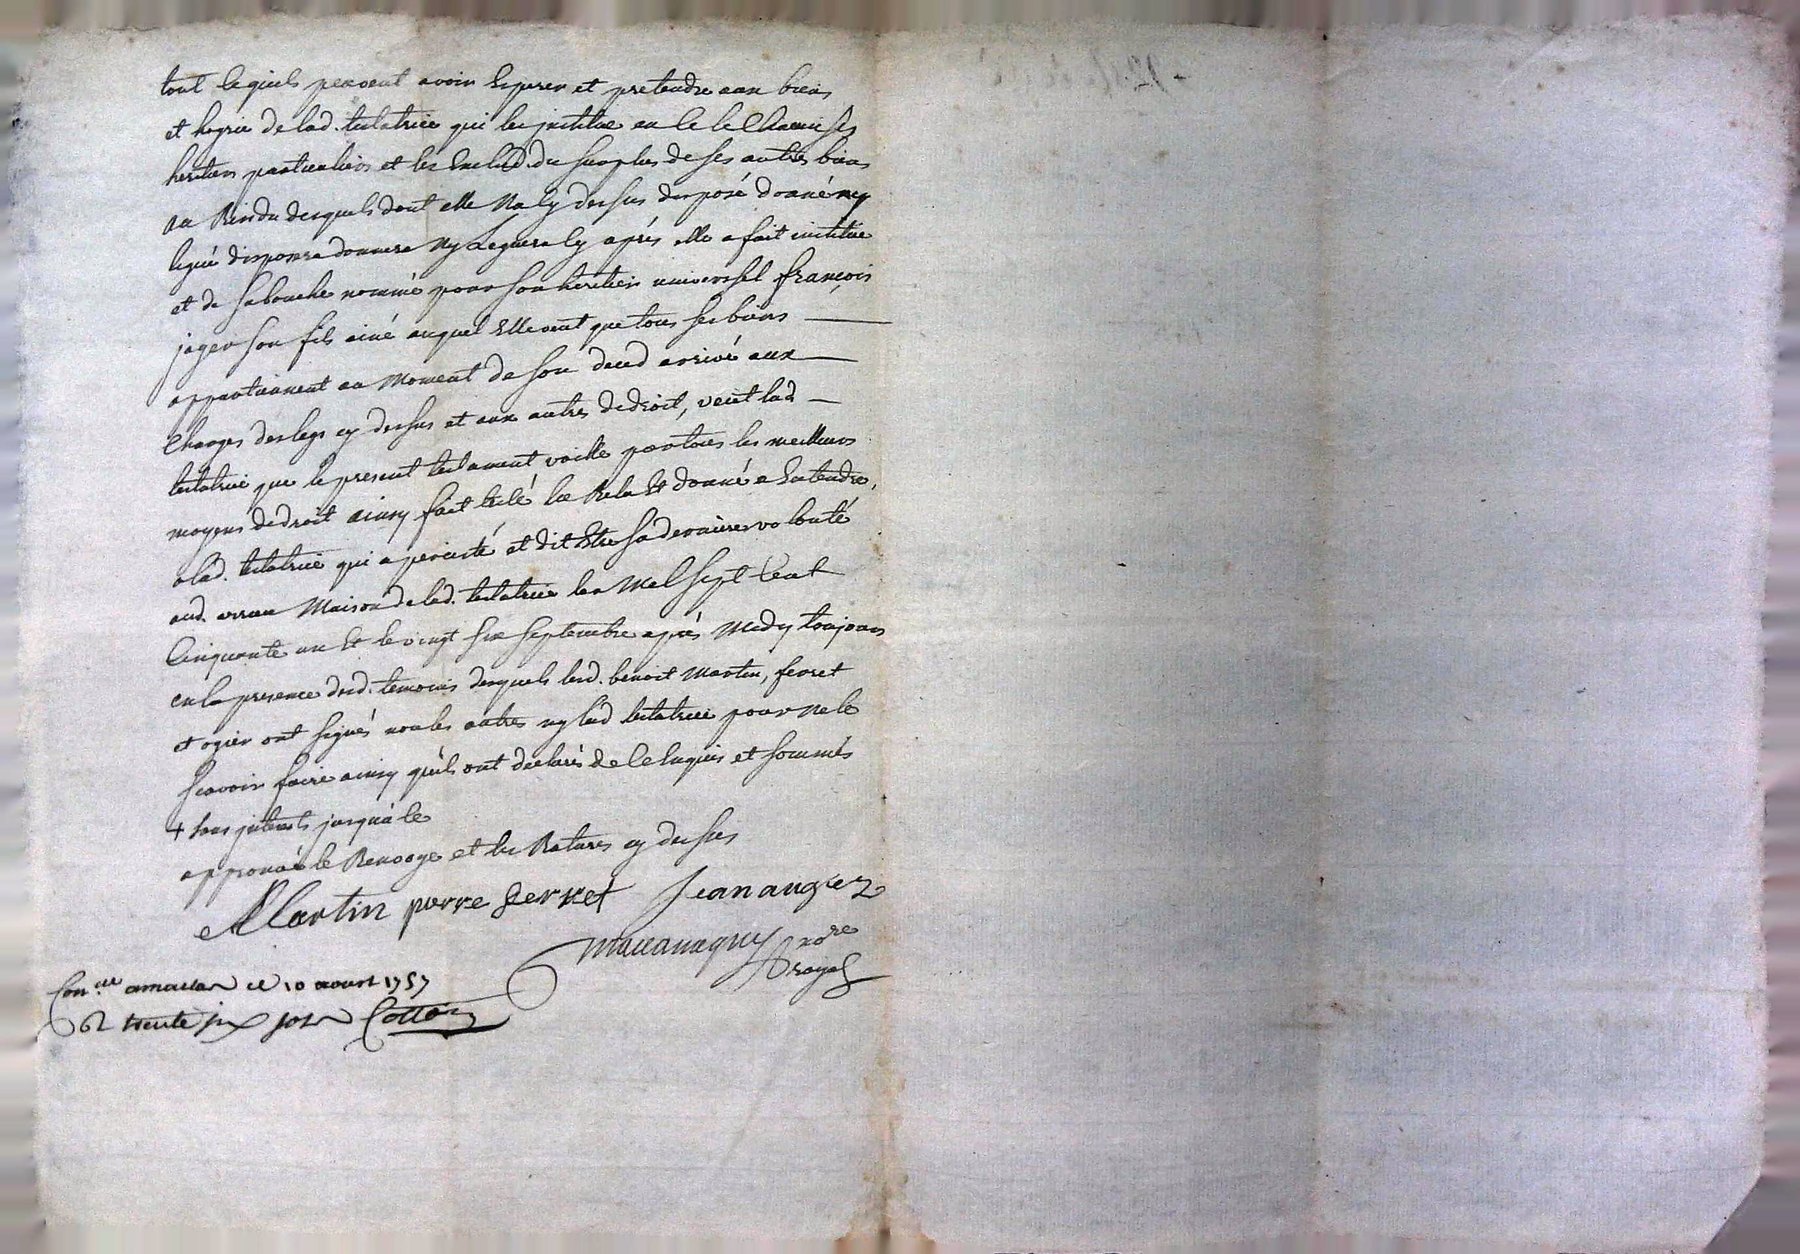 tout ce quils peuvent avoir Esperer et pretendre aux biens
et hoyrie de lad. testatrice qui les jnstitue en ce ses
heritiers particuliers et les Exclud du surplus de ses autres biens
au Residu desquels dont elle Na cy dessus disposé donné ny
legué disposera donnera Ny Leguera cy après elle a fait institué
et de sa bouche nommé pour son heritier universsel françois
joger son fils ainé auquel Elle veut que tous ses biens
appartiennent au Moment de son deced arrivé aux
Charges des legs cy dessus et aux autres de droit, veut lad
testatrice que le present testament vaille par tous les meilleurs
moyens de droit ainsy fait leu Relu Et donné a Entendre,
a lad. testatrice qui a percisté et dit Etre sa derniere volonté
aud. Maison de lad. testatrice lan Mel sept Cent
Cinquante un Et le vingt six septembre après Midy toujours
en la presence desd. temoins desquels lesd. benoit Martin, ferret
et ogier ont signés non les autres ny lad testatrice pour ne le
scavoir faire ainsy quils ont declarés de ce Enquis et sommés
+ sans jnterets jusqua ce
approuvé le Renvoye et les Ratures cy dessus
Martin pierre ferret Jean augier
nore
royal
Con.lle a le 10 aoust 1757
R trente six sols Cotton